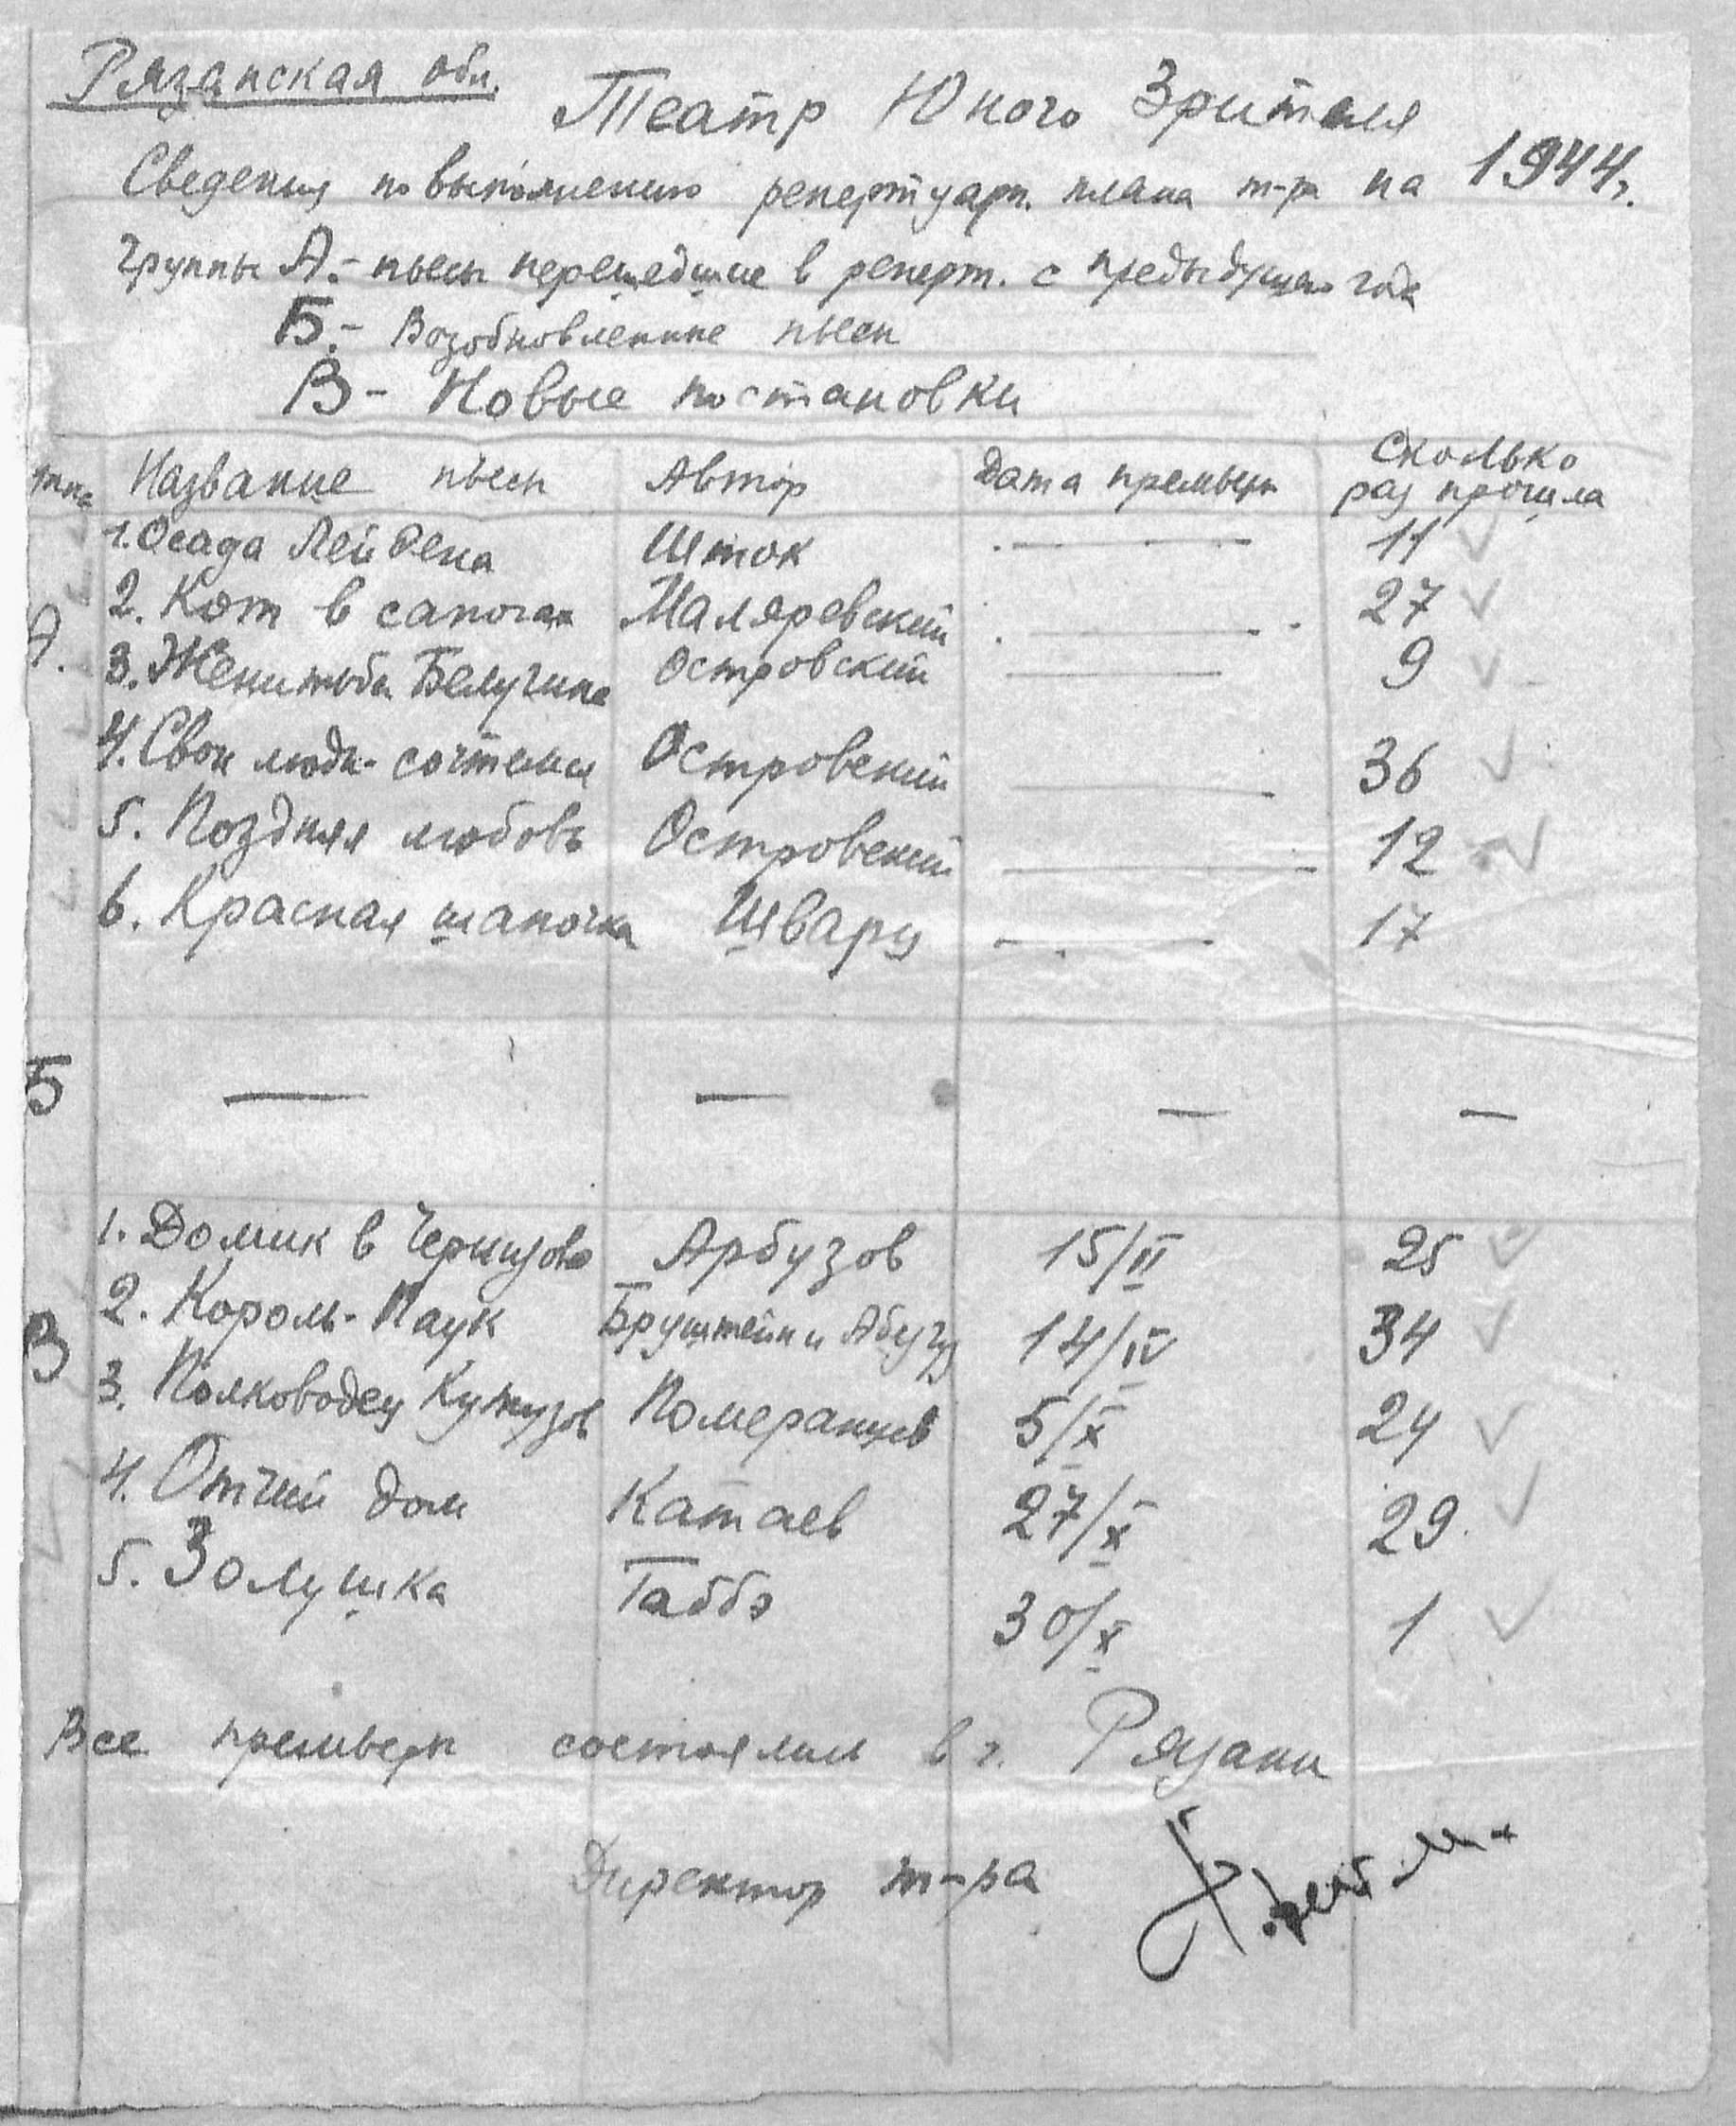 Рязанская обл.
Театр Юного Зрителя
Сведения по выполнению репертуарн. плана т-ра на 1944г.
Группы А.- пьесы перешедшие в реперт. с предыдущего года
Б.- Возобновленные пьесы
В- Новые постановки
Название пьесы Автор Дата премьеры Сколько раз прошла
А.
1. Осада Лейдена Шток — 11
2. Кот в сапогах Маляревский — 27
3. Женитьба Белугина Островский — 9
4. Свои люди- сочтемся Островский — 36
5. Поздняя любовь Островский — 12
6. Красная шапочка Шварц — 17
Б — — — —
В
1. Домик в Черкизове Арбузов 15/II 25
2. Король-Паук Бруштейн и 14/IV 34
3. Полководец Кутузов Померанцев 5/X 24
4. Отчий дом Катаев 27/X 29
5. Золушка Габбэ 30/X 1
Все премьеры состоялись в г. Рязани
Директор т-ра